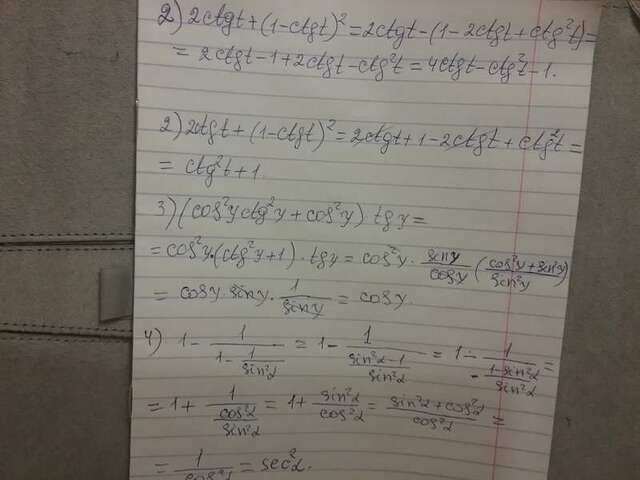 2) 2ctgt + (1-ctgt)² = 2ctgt - (1 - 2ctgt + ctg²t) =
= 2ctgt - 1 + 2ctgt - ctg²t = 4ctgt - ctg²t - 1.
2) 2ctgt + (1-ctgt)² = 2ctgt + 1 - 2ctgt + ctg²t =
= ctg²t + 1.
3) (cos²y ctg²y + cos²y) tgy =
= cos²y·(ctg²y+1)·tgy = cos²y · siny/cosy (cos²y + sin²y/sin²y)
= cosy · siny · 1/siny = cosy.
4) 1 - 1/(1 - 1/sin²α) = 1 - 1/((sin²α-1)/sin²α) = 1 - 1/(-(1-sin²α)/sin²α) =
= 1 + 1/(cos²α/sin²α) = 1 + sin²α/cos²α = (sin²α + cos²α)/cos²α =
= 1/cos²α = sec²α.